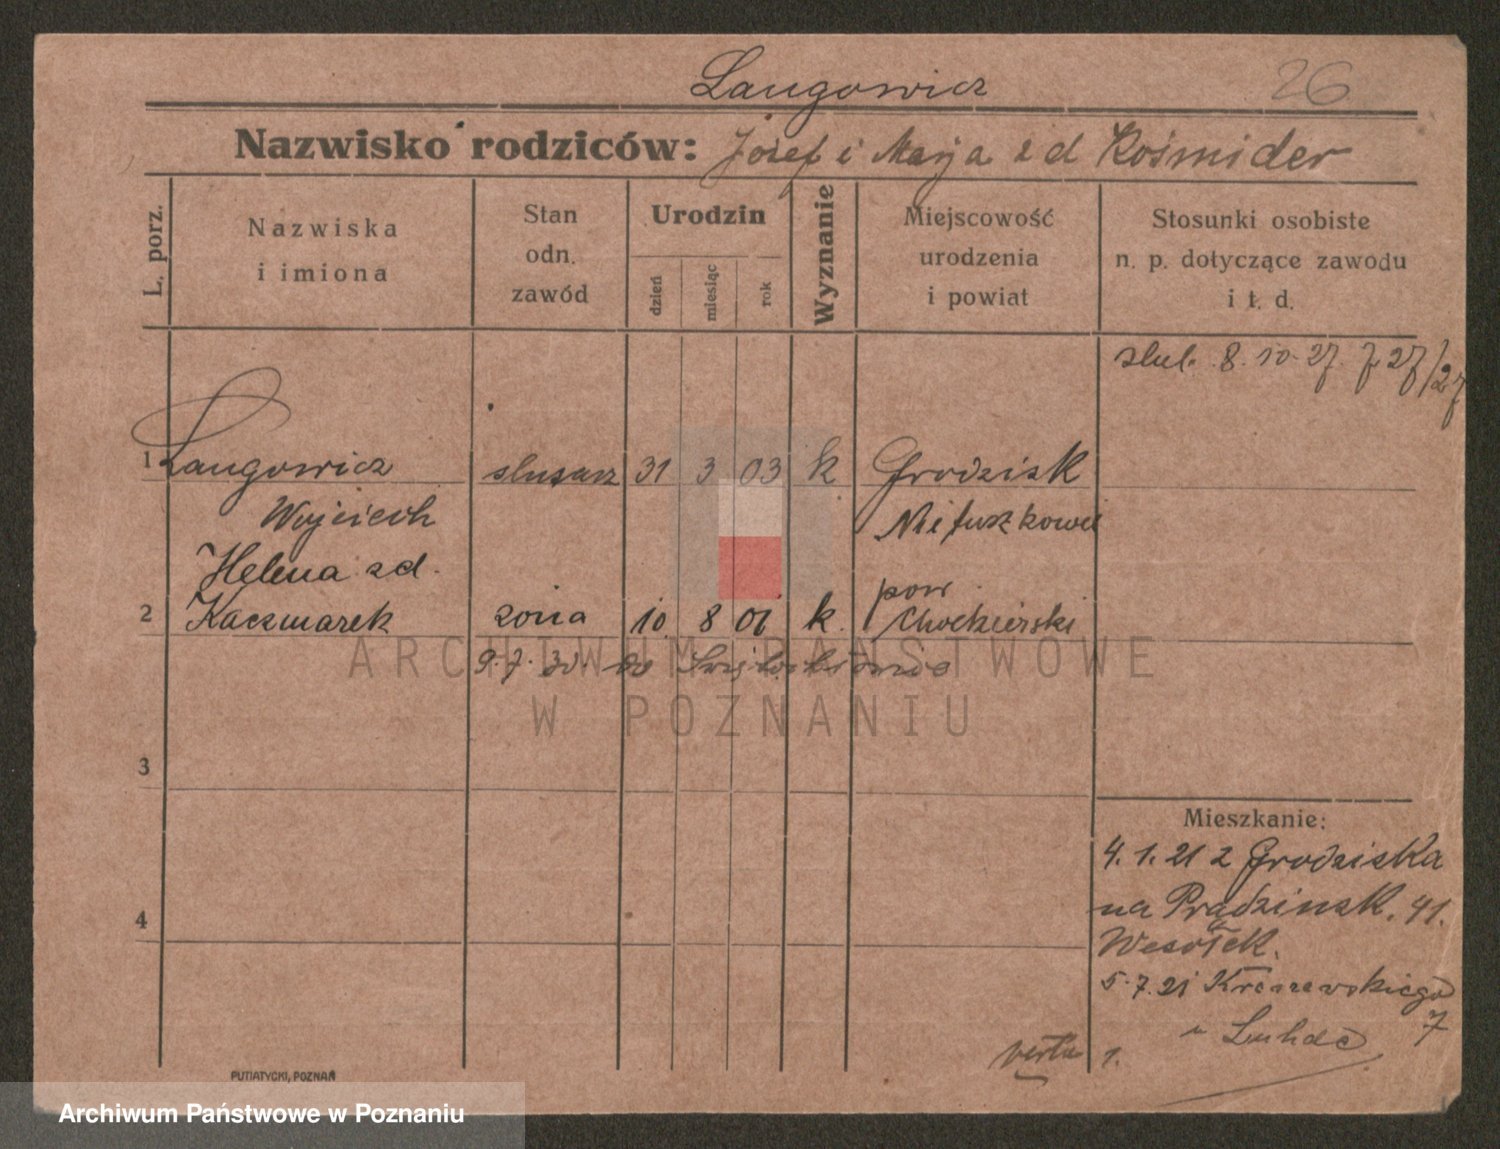 Laugowicz 26
Nazwisko rodziców: Józef i Marja zd Kośmider
L. porz.
Nazwiska
i imiona
Stan
odn.
zawód
Urodzin
dzień
miesiąc
rok
Wyznanie
Miejscowość
urodzenia
i powiat
Stosunki osobiste
n. p. dotyczące zawodu
i t. d.
slub. 8.10.27.
1 Laugowicz slusarz 31 3 03 k Grodzisk
Wojciech
Helena zd.
pow
2 Kaczmarek żona 10 8 01 k. Chodzieski
9.7.30. do
3
4
Mieszkanie:
4.1.21 z Grodziska
na Prądzinsk. 41.
Wesołek.
5.7.21 Kraszewskiego
7
verta 1.
PUTIATYCKI, POZNAŃ
ARCHIWUM PAŃSTWOWE
W POZNANIU
Archiwum Państwowe w Poznaniu